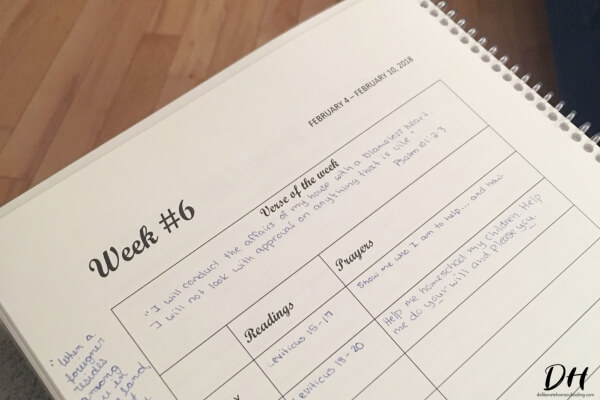 FEBRUARY 4 – FEBRUARY 10, 2018
Week #6
Verse of the week
"I will conduct the affairs of my house with a blameless heart
I will not look with approval on anything that is vile"
Psalm 101:2-3
Readings
Prayers
Leviticus 15-17
Show me who I am to help... and how
Leviticus 18-20
Help me homeschool my children. Help
me do your will and please you.
"When a
foreigner
resides
among
land,
DH
deliberatehomeschooling.com